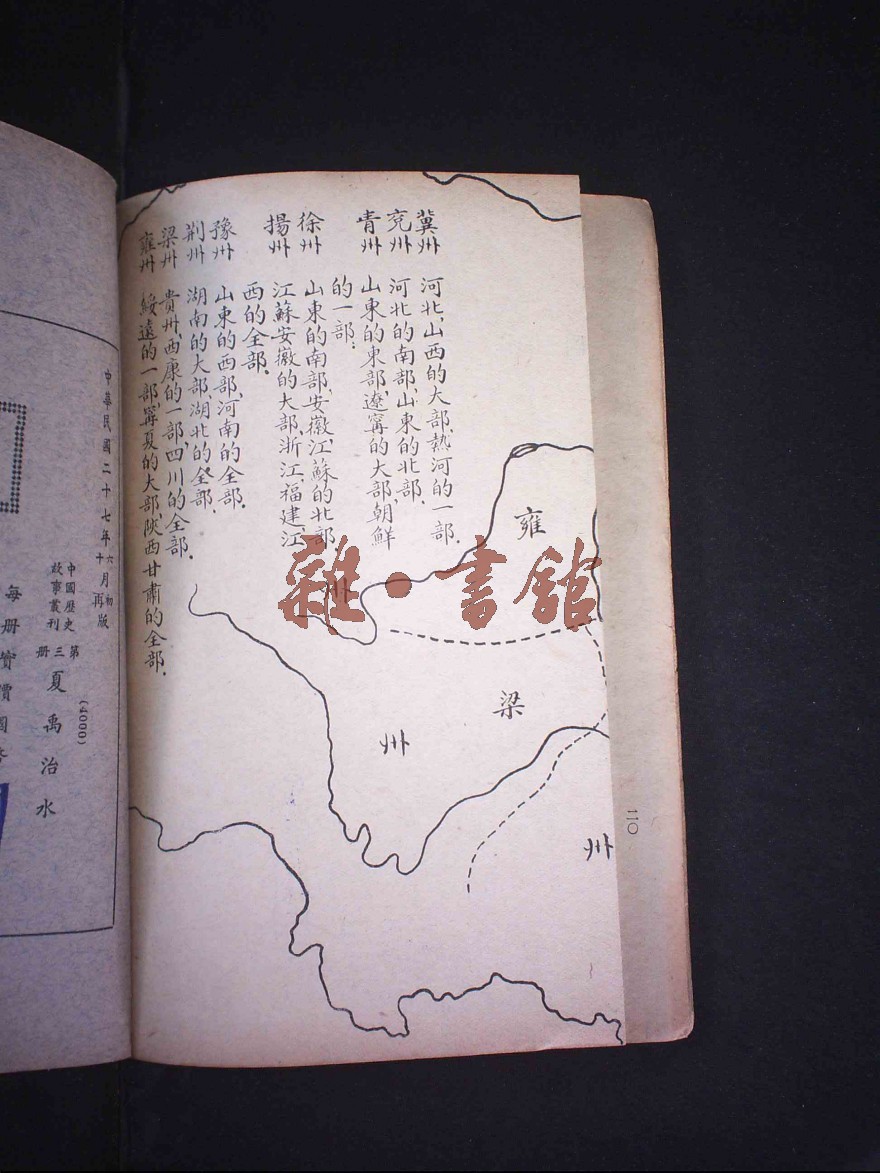 冀州 河北、山西的大部、熱河的一部.
兗州 河北的南部、山東的北部.
青州 山東的東部、遼寧的大部、朝鮮
的一部.
徐州 山東的南部、安徽、江蘇的北部
揚州 江蘇安徽的大部、浙江、福建、江
西的全部.
豫州 山東的西部、河南的全部.
荆州 湖南的大部、湖北的全部.
梁州 貴州、西康的一部、四川的全部.
雍州 綏遠的一部、寧夏的大部、陝西甘肅的全部.
雍
州
梁
州
州
二〇
雜·書館
中華民國二十七年
六月初
十 再版
中國歷史
故事叢刊
第三册
夏禹治水
(4000)
每册實價國